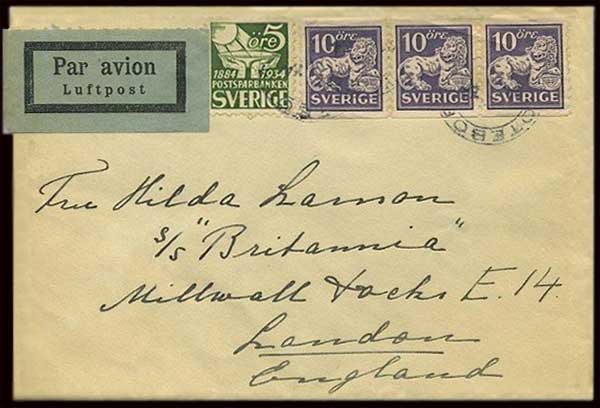 Par avion
Luftpost
öre 5
1884 1934
POSTSPARBANKEN
SVERIGE
10 ÖRE
SVERIGE
10 ÖRE
SVERIGE
10 ÖRE
SVERIGE
Fru Hilda Larson
s/s "Britannia"
Millwall Docks E. 14.
London
England